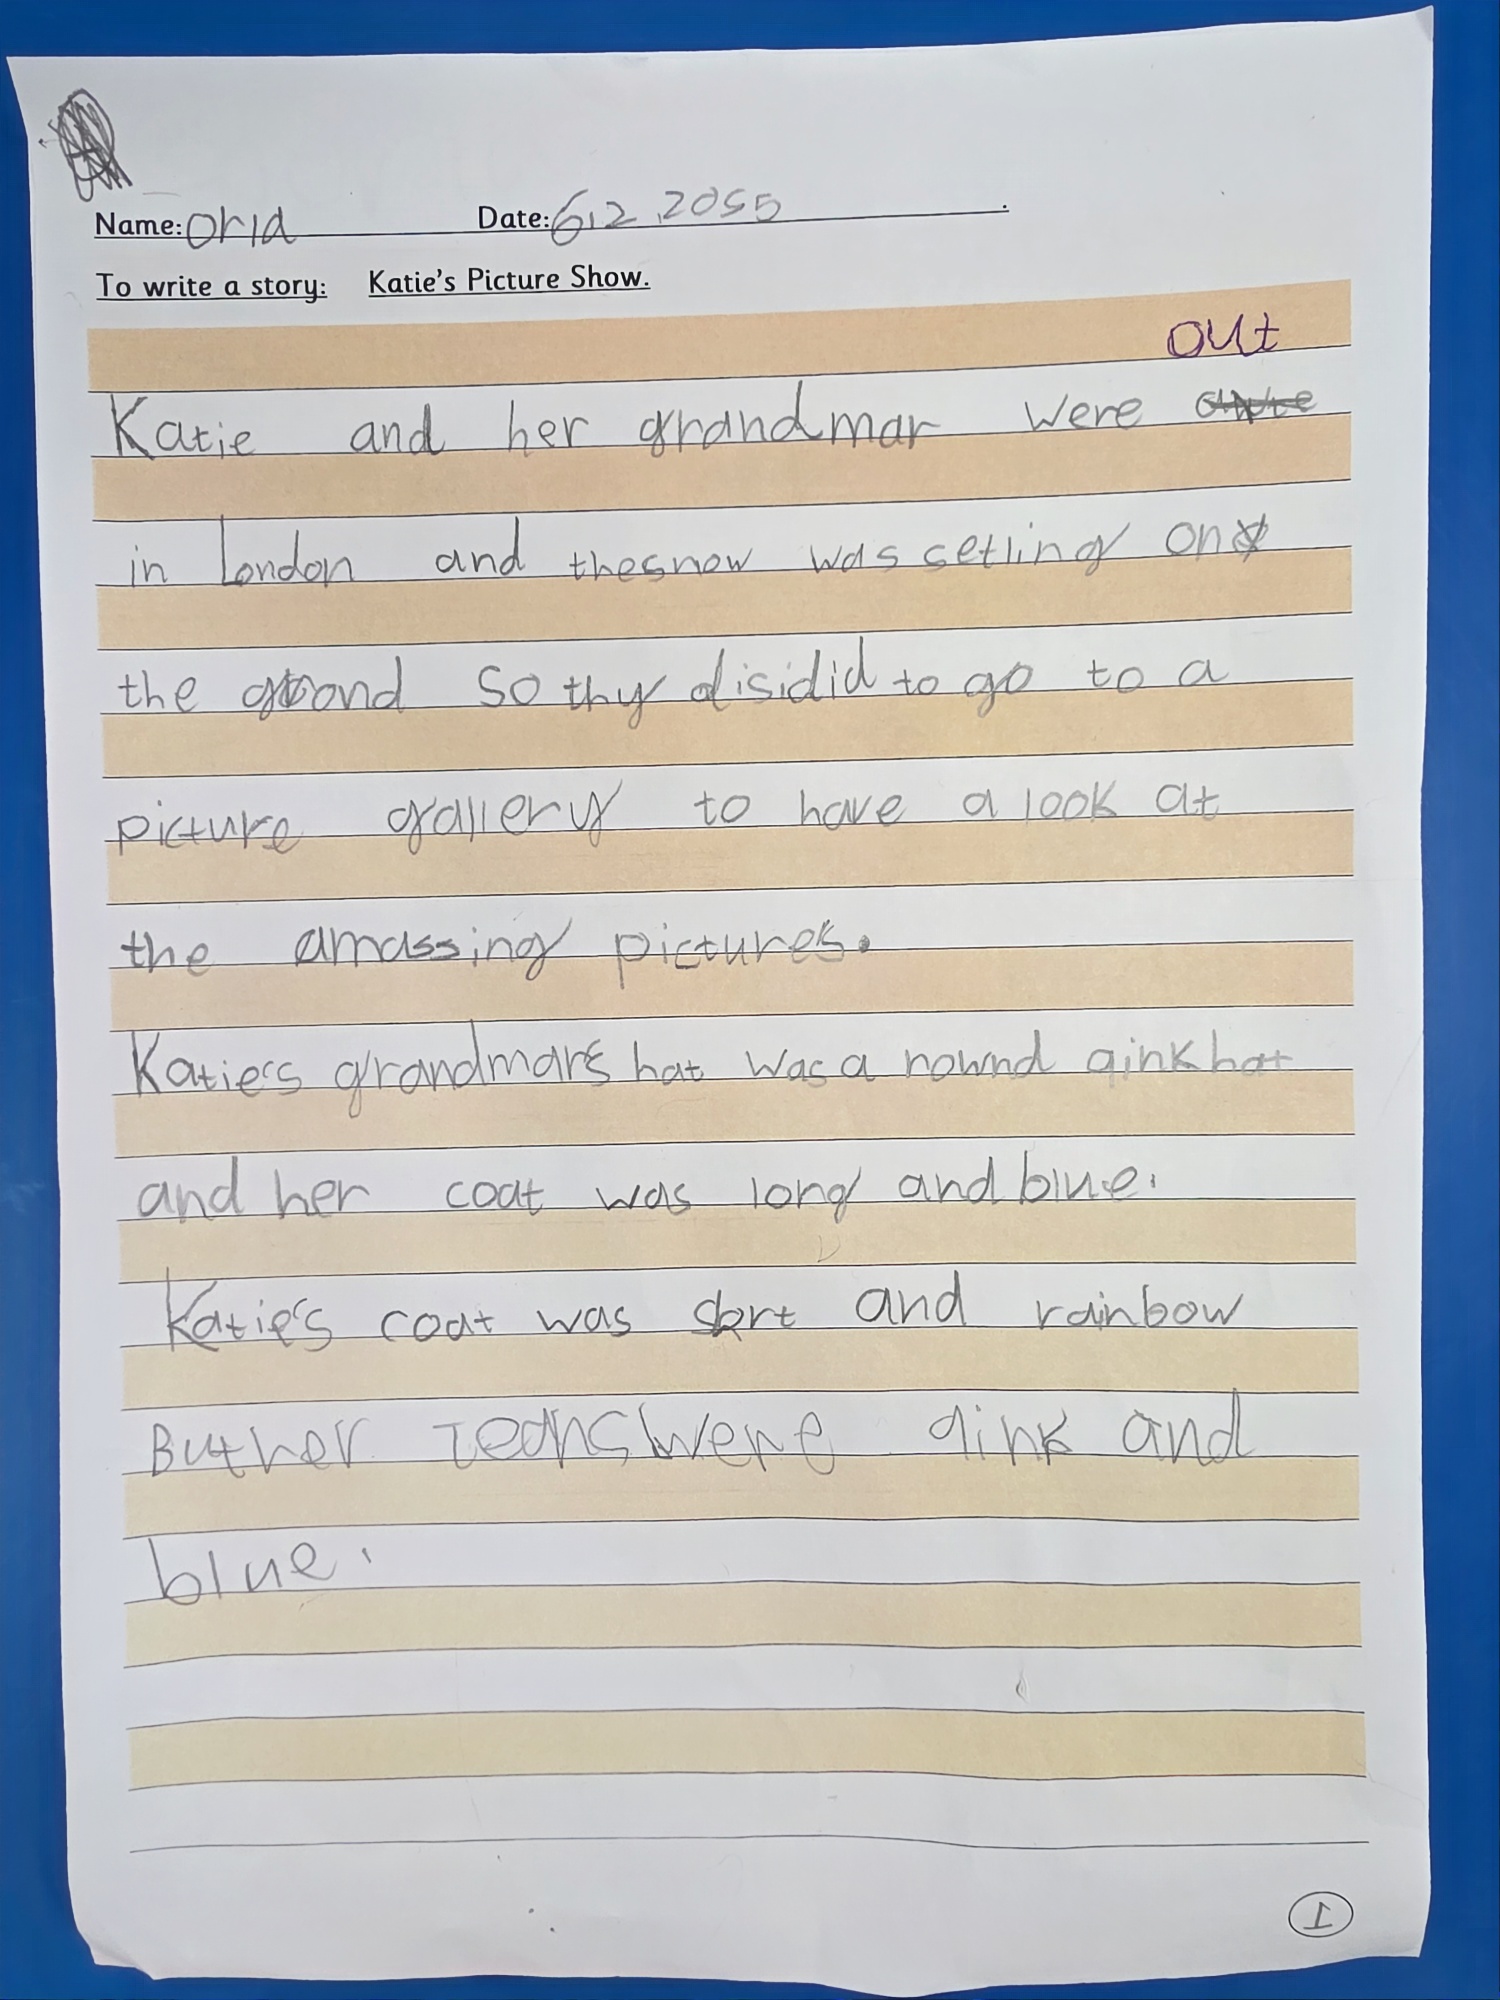 Name: Orla Date: 6.2.2055
To write a story: Katie's Picture Show.
out
Katie and her grandmar were
in London and thesnow was setling on
the grond so thy disidid to go to a
picture gallery to have a look at
the amassing pictures.
Katie's grandmar's hat was a rownd qink hat
and her coat was long and blue.
Katie's coat was sort and rainbow
But her Jeans were qink and
blue.
1